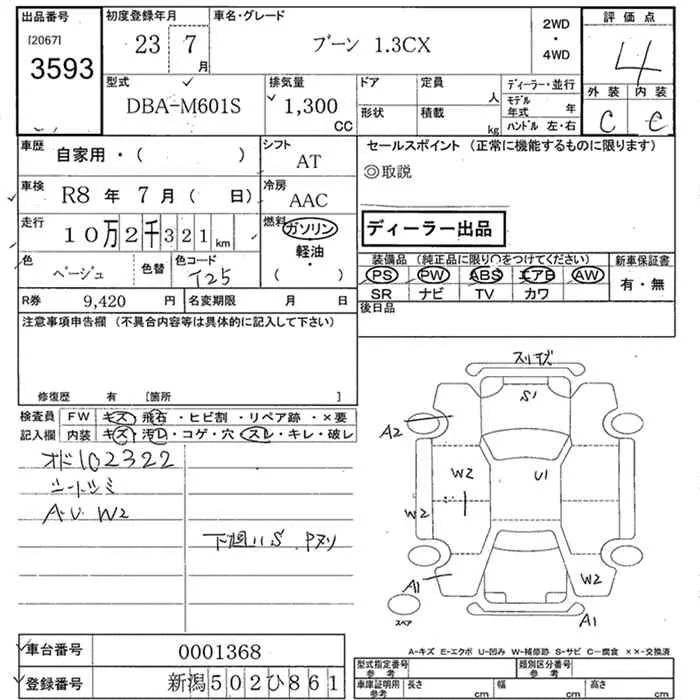 出品番号 初度登録年月 車名・グレード 2WD ・ 4WD 評価点
[2067]
3593 23 7月 ブーン 1.3CX 4
型式 排気量 ドア 定員 人 ディーラー・並行 外装 内装
DBA-M601S 1,300 CC 形状 積載 kg モデル年式 年 ハンドル 左・右 C C
車歴 自家用・( ) シフト AT セールスポイント (正常に機能するものに限ります)
◎取説
車検 R8年 7月( 日) 冷房 AAC
走行 10万2千321km 燃料 ガソリン・軽油・( ) ディーラー出品
色 ベージュ 色替 色コード T25 装備品 (純正品に限り○をつけてください) 新車保証書
PS PW ABS エアB AW 有・無
SR ナビ TV カワ
R券 9,420円 名変期限 月 日 後日品
注意事項申告欄 (不具合内容等は具体的に記入して下さい)
修復歴 有 [箇所 ]
検査員 FW キズ・飛石・ヒビ割・リペア跡・×要
記入欄 内装 キズ・汚レ・コゲ・穴・スレ・キレ・破レ
オド102322
シートシミ
A.U W2
下廻りS Pヌリ
スリキズ
S1
A2
W2 U1
W2
A1 W2
スペア A1
A-キズ E-エクボ U-凹み W-補修跡 S-サビ C-腐食 ××-交換済
車台番号 0001368 型式指定番号 参考 類別区分番号 参考
登録番号 新潟502ひ861 車庫証明用 参考 長さ cm 幅 cm 高さ cm